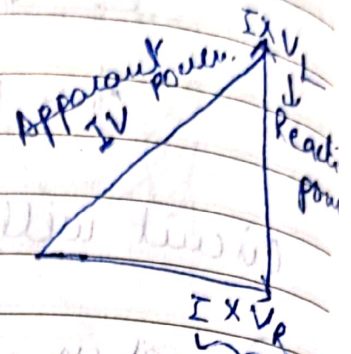 I X V_L
Apparaut power.
IV
↓
Reacti
pow
I X V_R